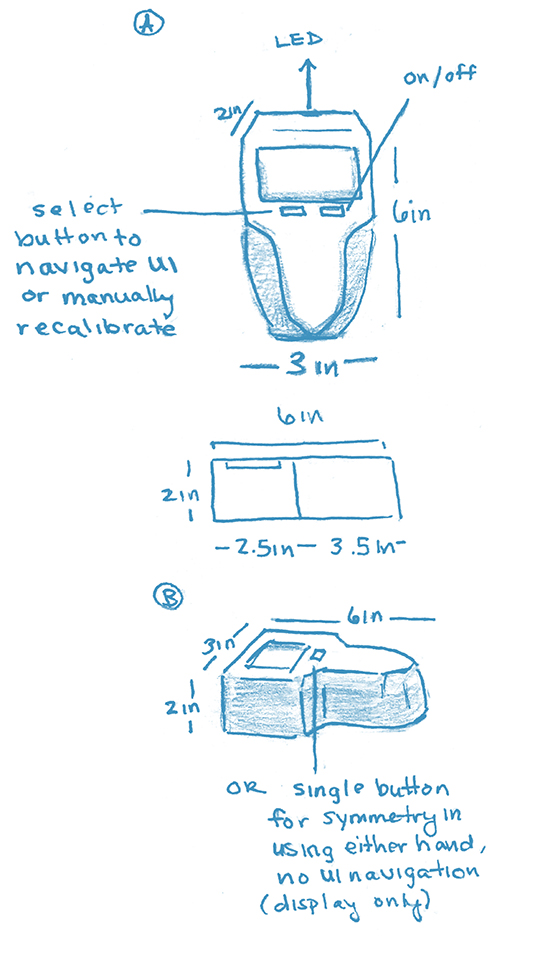 A
LED
on/off
2in
select
button to
navigate UI
or manually
recalibrate
6in
3 in
6in
2in
2.5in 3.5in
B
6in
3in
2in
OR single button
for symmetry in
using either hand,
no UI navigation
(display only)